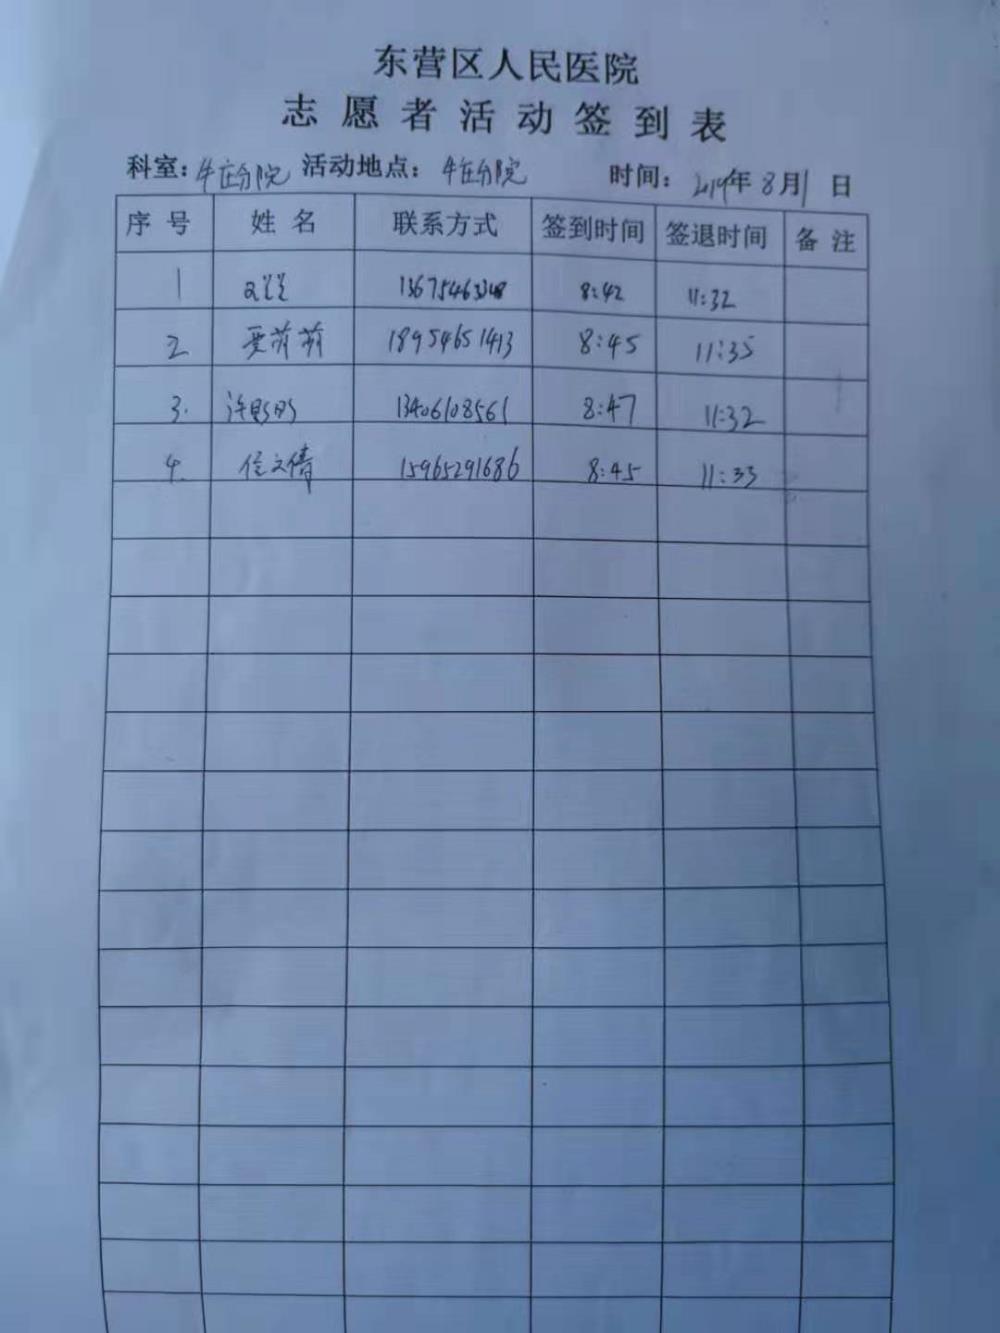 东营区人民医院
志愿者活动签到表
科室：牛庄分院 活动地点：牛庄分院 时间：2019年8月1日
序号 姓名 联系方式 签到时间 签退时间 备注
1 8:42 11:32
2 萌萌 18954651413 8:45 11:35
3. 许 13406108561 8:47 11:32
4. 侯文倩 15965291686 8:45 11:33